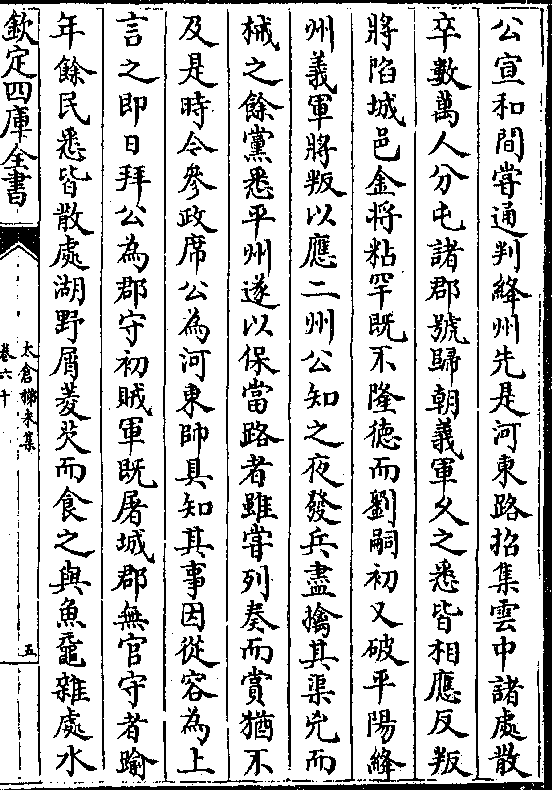 公宣和間嘗通判絳州先是河東路招集雲中諸處散
卒數萬人分屯諸郡號歸朝義軍乆之悉皆相應反叛
將陷城邑金將粘罕既不隆德而劉嗣初又破平陽絳
州義軍將叛以應二州公知之夜發兵盡擒其渠兇而
械之餘黨悉平州遂以保當路者雖嘗列奏而賞猶不
及是時令參政席公為河東帥具知其事因從容為上
言之即日拜公為郡守初賊軍既屠城郡無官守者踰
年餘民悉皆散處湖野屑菱芡而食之與魚黿雜處水
欽定四庫全書
太倉稊米集
卷六十
五